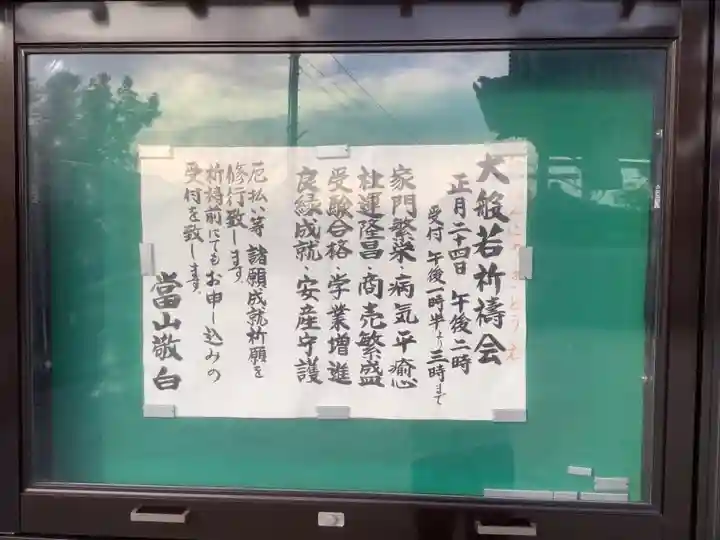 大般若祈祷会
だいはんにゃきとうえ
正月二十四日 午後二時
受付 午後一時半より三時まで
家門繁栄・病気平癒
社運隆昌・商売繁盛
受験合格・学業増進
良縁成就・安産守護
厄払い等 諸願成就祈願を
修行致します。
祈祷前にてもお申し込みの
受付を致します。
當山敬白